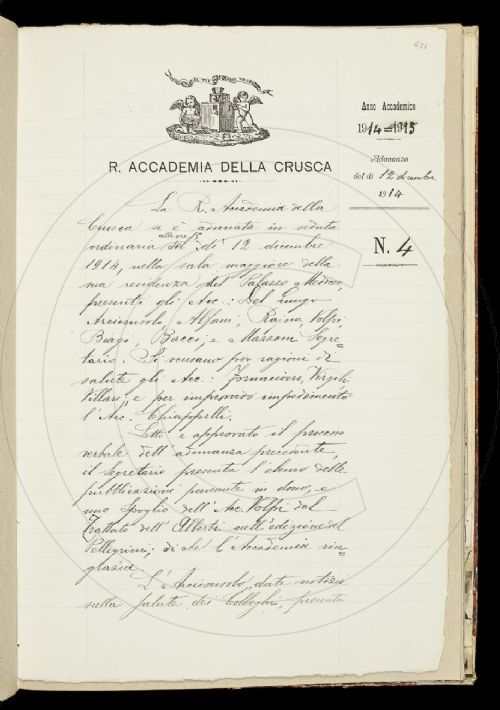 631
IL PIÙ BEL FIOR NE COGLIE
R. ACCADEMIA DELLA CRUSCA
Anno Accademico
1914=1915
Adunanza
del dì 12 dicembre
1914
N. 4
La R. Accademia della
Crusca si è adunata in seduta
ordinaria alle ore del dì 12 dicembre
1914, nella sala maggiore della
sua residenza nel Palazzo Mediceo,
presenti gli Acc.: Del Lungo
Arciconsolo, Alfani, Rajna, Volpi,
Biagi, Bacci, e Mazzoni Segre=
tario. Si scusano per ragioni di
salute gli Acc.: Fornaciari, Virgili,
Villari, e per improvviso impedimento
l'Acc. Chiappelli.
Letto e approvato il processo
verbale dell'adunanza precedente,
il Segretario presenta l'elenco delle
pubblicazioni pervenute in dono, e
uno spoglio dell'Acc. Volpi dal
Trattato dell'Alberti nell'edizione del
Pellegrini; di che l'Accademia rin=
grazia.
L'Arciconsolo, date notizie
sulla salute dei Colleghi, presenta